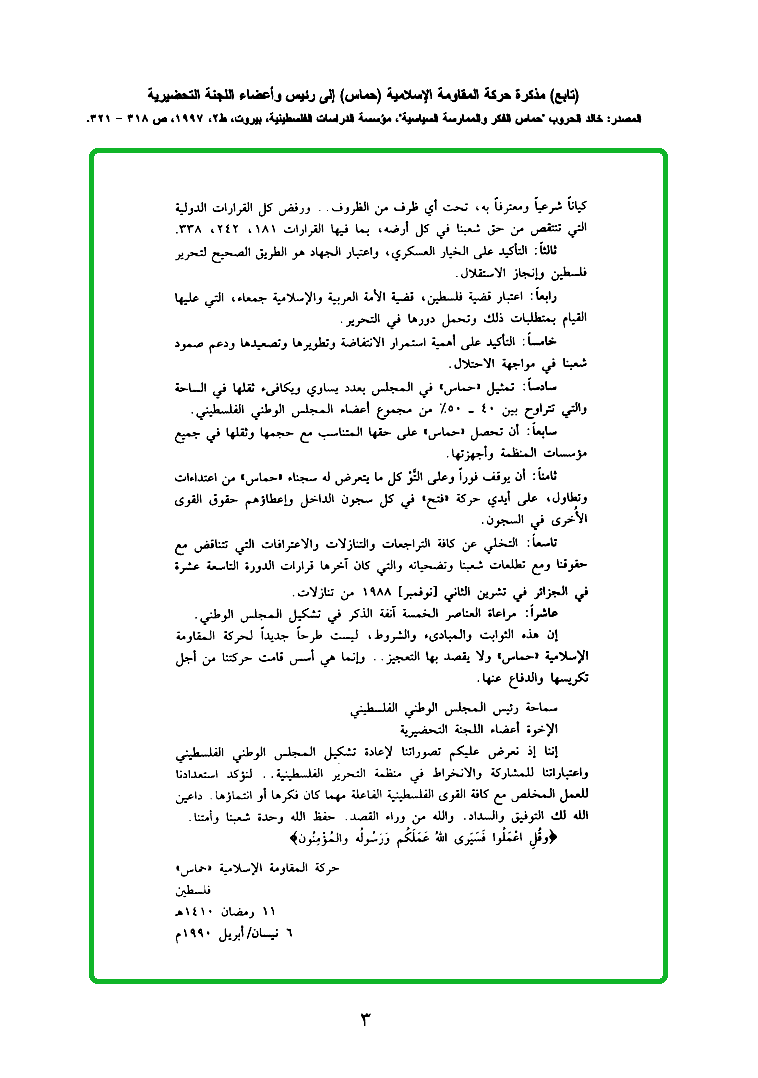 (تابع) مذكرة حركة المقاومة الإسلامية (حماس) إلى رئيس وأعضاء اللجنة التحضيرية
المصدر: خالد الحروب "حماس الفكر والممارسة السياسية"، مؤسسة الدراسات الفلسطينية، بيروت، ط٢، ١٩٩٧، ص ٣١٨ – ٣٢١.
كياناً شرعياً ومعترفاً به، تحت أي ظرف من الظروف.. ورفض كل القرارات الدولية
التي تنتقص من حق شعبنا في كل أرضه، بما فيها القرارات ١٨١، ٢٤٢، ٣٣٨.
ثالثاً: التأكيد على الخيار العسكري، واعتبار الجهاد هو الطريق الصحيح لتحرير
فلسطين وإنجاز الاستقلال.
رابعاً: اعتبار قضية فلسطين، قضية الأمة العربية والإسلامية جمعاء، التي عليها
القيام بمتطلبات ذلك وتحمل دورها في التحرير.
خامساً: التأكيد على أهمية استمرار الانتفاضة وتطويرها وتصعيدها ودعم صمود
شعبنا في مواجهة الاحتلال.
سادساً: تمثيل «حماس» في المجلس بعدد يساوي ويكافىء ثقلها في الساحة
والتي تتراوح بين ٤٠ ـ ٥٠٪ من مجموع أعضاء المجلس الوطني الفلسطيني.
سابعاً: أن تحصل «حماس» على حقها المتناسب مع حجمها وثقلها في جميع
مؤسسات المنظمة وأجهزتها.
ثامناً: أن يوقف فوراً وعلى التَّوْ كل ما يتعرض له سجناء «حماس» من اعتداءات
وتطاول، على أيدي حركة «فتح» في كل سجون الداخل وإعطاؤهم حقوق القوى
الأُخرى في السجون.
تاسعاً: التخلي عن كافة التراجعات والتنازلات والاعترافات التي تتناقض مع
حقوقنا ومع تطلعات شعبنا وتضحياته والتي كان آخرها قرارات الدورة التاسعة عشرة
في الجزائر في تشرين الثاني [نوفمبر] ١٩٨٨ من تنازلات.
عاشراً: مراعاة العناصر الخمسة آنفة الذكر في تشكيل المجلس الوطني.
إن هذه الثوابت والمبادىء والشروط، ليست طرحاً جديداً لحركة المقاومة
الإسلامية «حماس» ولا يقصد بها التعجيز.. وإنما هي أسس قامت حركتنا من أجل
تكريسها والدفاع عنها.
سماحة رئيس المجلس الوطني الفلسطيني
الإخوة أعضاء اللجنة التحضيرية
إننا إذ نعرض عليكم تصوراتنا لإعادة تشكيل المجلس الوطني الفلسطيني
واعتباراتنا للمشاركة والانخراط في منظمة التحرير الفلسطينية.. لنؤكد استعدادنا
للعمل المخلص مع كافة القوى الفلسطينية الفاعلة مهما كان فكرها أو انتماؤها. داعين
الله لك التوفيق والسداد. والله من وراء القصد. حفظ الله وحدة شعبنا وأمتنا.
﴿وقُلِ اعْمَلُوا فَسَيَرى اللهُ عَمَلَكُم وَرَسُولُه والمُؤْمِنُون﴾
حركة المقاومة الإسلامية «حماس»
فلسطين
١١ رمضان ١٤١٠هـ
٦ نيسان/أبريل ١٩٩٠م
٣